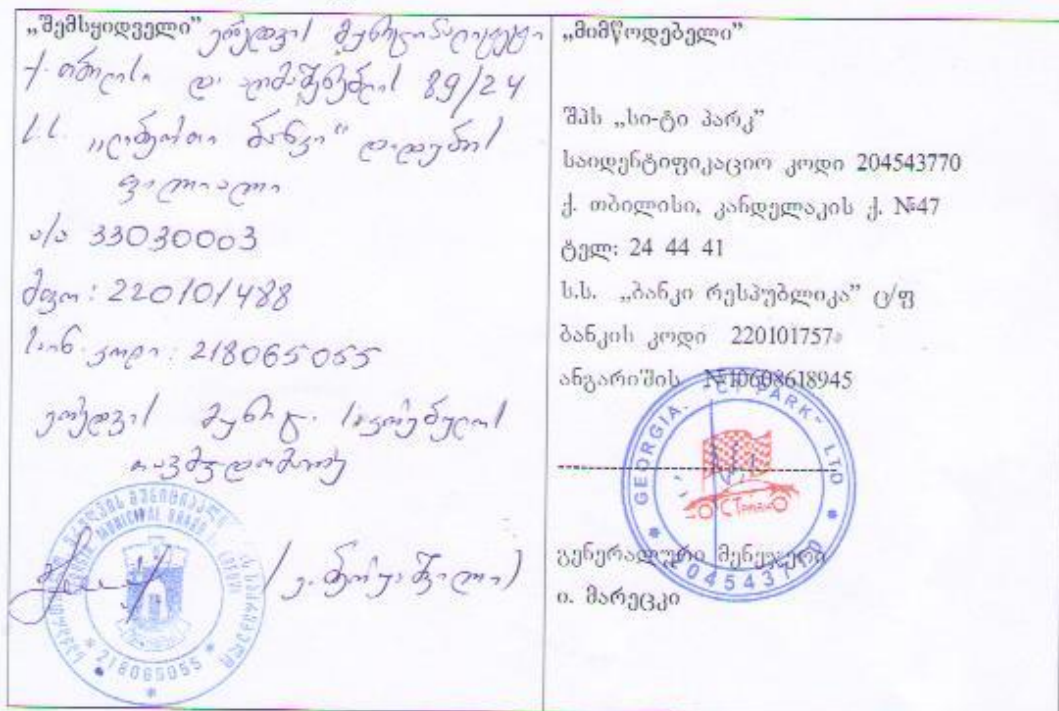 „შემსყიდველი” კოდვის მუნიციპალიტეტი
ქ. თბილისი დ. აღმაშენებლის 89/24
ს.ს. „ლიბერთი ბანკი“ დიდუბის
ფილიალი
ა/ა 33030003
მფო: 220101488
საინ. კოდი: 218065055
მუნიც. საკრებულოს
თავმჯდომარე
218065055
„მიმწოდებელი”
შპს „სი-ტი პარკ”
საიდენტიფიკაციო კოდი 204543770
ქ. თბილისი, კანდელაკის ქ. №47
ტელ: 24 44 41
ს.ს. „ბანკი რესპუბლიკა” ც/ფ
ბანკის კოდი 220101757
ანგარიშის №10608618945
GEORGIA. "CT PARK" LTD
CT PARK
204543770
გენერალური მენეჯერი
ი. მარეცკი